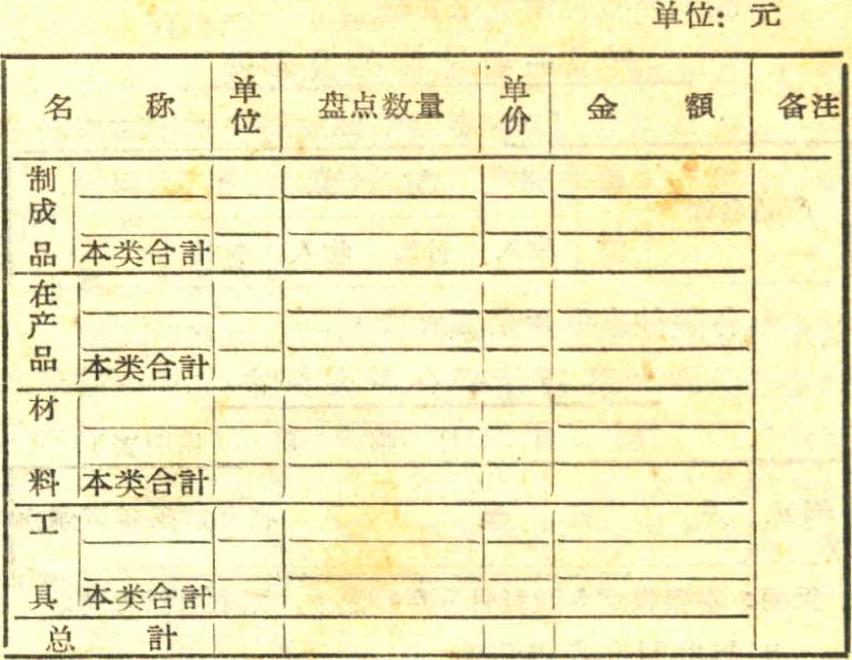 单位：元
名 称 单位 盘点数量 单价 金 額 备注
制成品
本类合計
在产品
本类合計
材料
本类合計
工具
本类合計
总 計